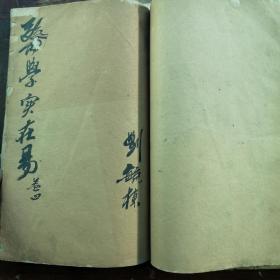 醫學實在易 卷四
劉